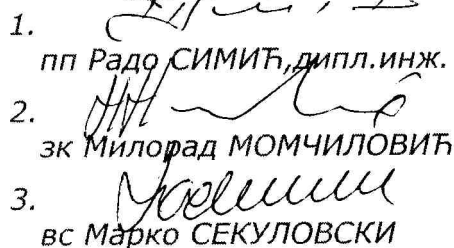 1.
пп Радо СИМИЋ,дипл.инж.
2.
зк Милорад МОМЧИЛОВИЋ
3.
вс Марко СЕКУЛОВСКИ